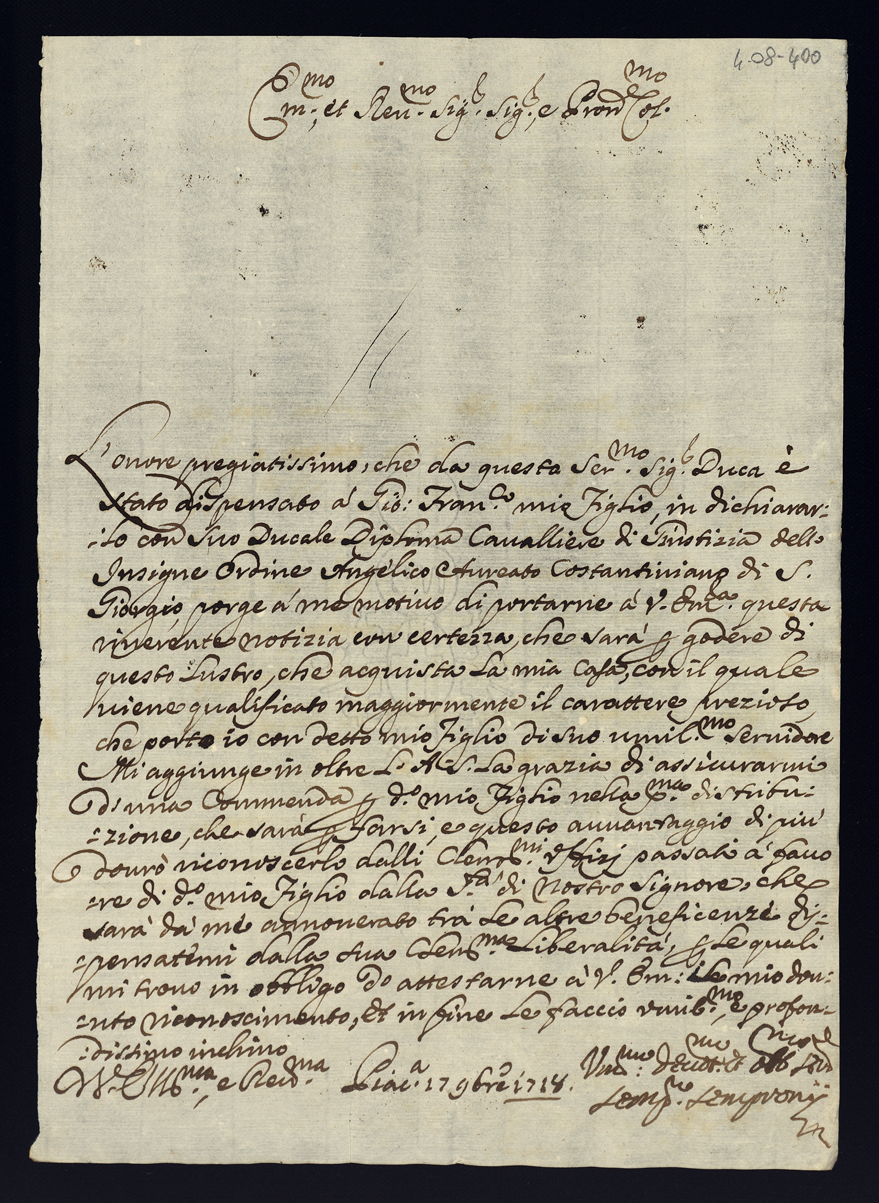 4-08-400
Em.mo, et Reu.mo Sig.r Sig.r, e Pron Col.mo
L'onore pregiatissimo, che da questa Ser.mo Sig.r Duca è
stato dispensato á Gio: Fran.co mio Figlio, in dichiarar=
=lo con suo Ducale Diploma Cavalliere di Giustizia dell'
Insigne Ordine Angelico Aureato Costantiniano di S.
Giorgio, porge á me motiuo di portarne á V. Em.a questa
riuerente notizia con certezza, che sará p godere di
questo Lustro, che acquista La mia Casa, con il quale
uiene qualificato maggiormente il carattere prezioso,
che porto io con detto mio Figlio di suo umil.mo seruidore
Mi aggiunge in oltre L. A. S. La grazia di assicurarmi
d'una Commenda p d.o mio Figlio nella p.ma distribu=
=zione, che sará p farsi, e questo auuantaggio di piú
dourò riconoscerlo dalli Clem.mi Uffizi passati á fauo
=re di d.o mio Figlio dalla S.tá di Nostro Signore, che
sará dá me annouerato trá Le altre beneficenze di=
=spensatemi dalla sua Clem.ma Liberalitá, p Le quali
mi trouo in obbligo d'attestarne á V. Em: Le mio dou=
=uto riconoscimento, Et in fine Le faccio umil.mo, e profon=
=dissimo inchino
e Reu.ma Piac.a 17 9bre 1718. Um.mo Deuot.mo et obb
Semp.o Sempronij